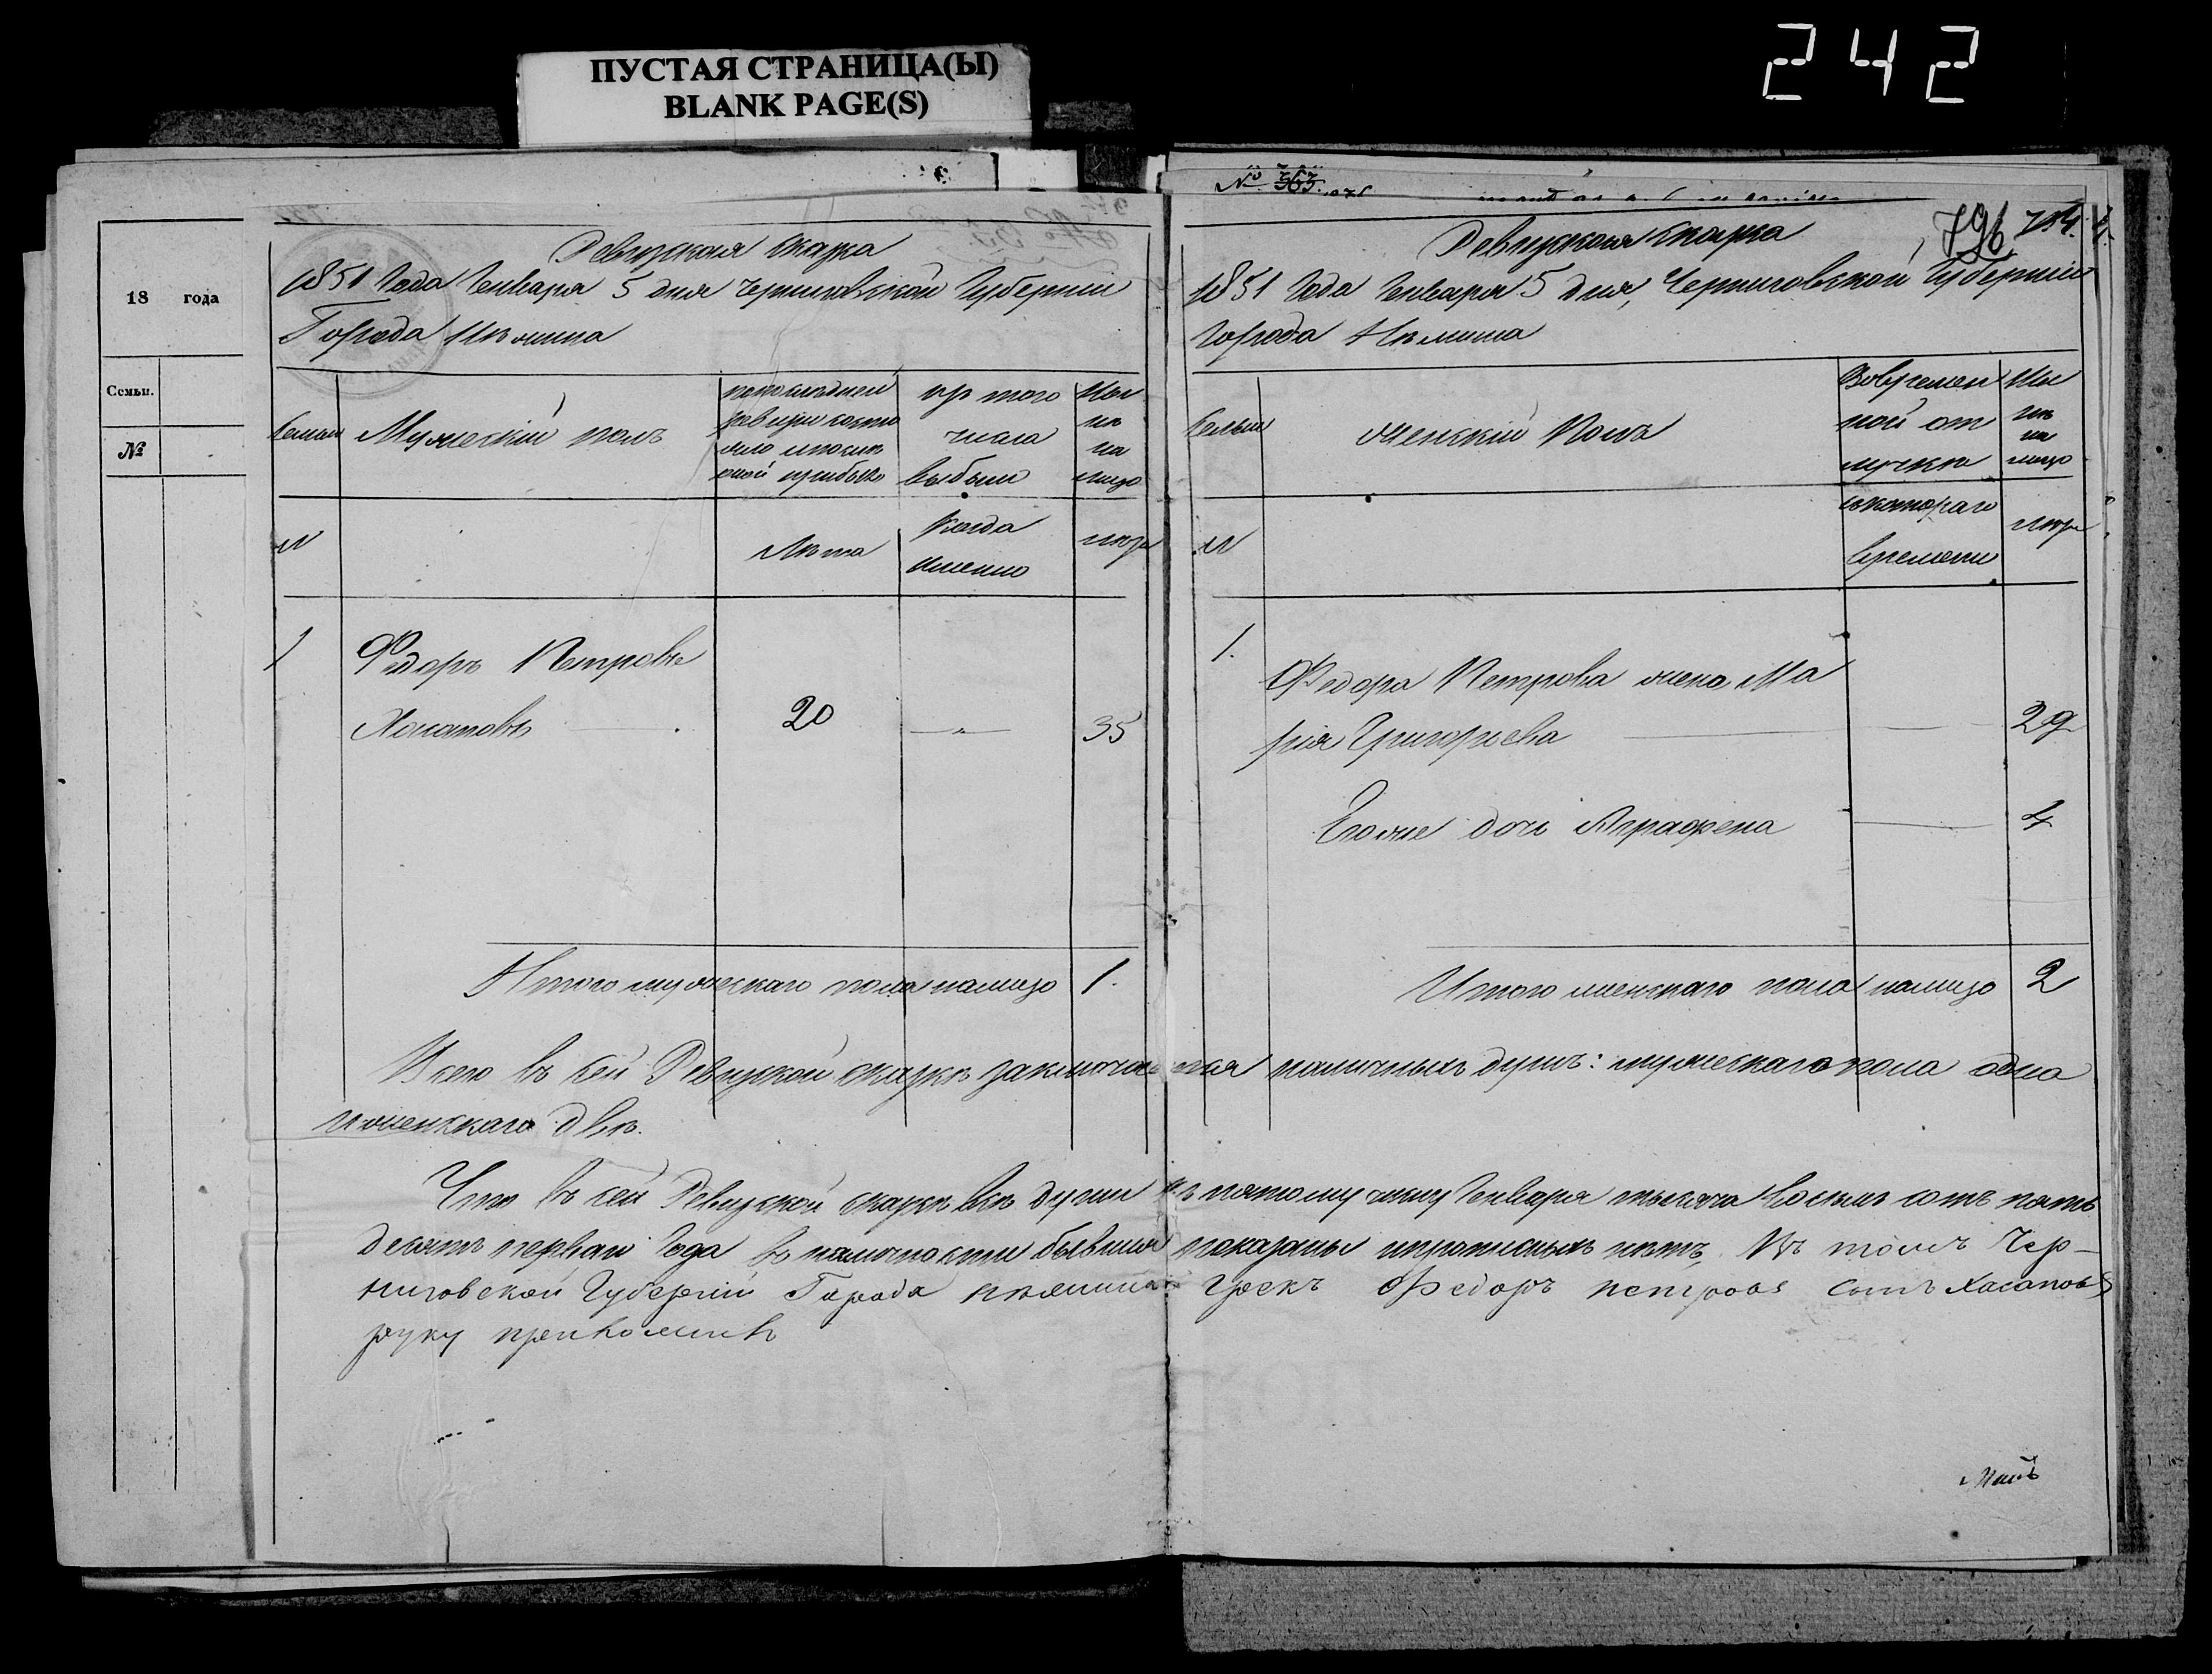 242
ПУСТАЯ СТРАНИЦА(Ы)
BLANK PAGE(S)
18 года
Семьи.
№
Ревизская сказка
1851 Года Генваря 5 дня Черниговской Губернии
Города Нежина
Семьи
Мужеский полъ
по последней ревизии состояло и после оной прибыло
из того числа выбыли
Ныне на лицо
№
Лета
Когда именно
Лета
1
Федоръ Петровъ
Хасаповъ
20
35
Итого мужескаго пола налицо 1.
№ 363
796
Ревизская сказка
1851 Года Генваря 5 дня, Черниговской Губернии
Города Нежина
Семьи
Женский Полъ
Во временной отлучке
Ныне на лицо
№
с котораго времени
Лета
1.
Федора Петрова жена Ма
рия Григорьева
29
Его же дочь Аграфена
4
Итого женскаго пола налицо 2
Всего въ сей Ревизской сказке заключается наличныхъ душъ: мужескаго пола одна
и женскаго две.
Что въ сей Ревизской сказке все души къ пятому числу Генваря тысяча восемь сотъ пять
десятъ перваго Года в наличности бывшия показаны и прописныхъ нетъ, Въ томъ Чер-
ниговской Губернии Города Нежина Грекъ Федоръ Петровъ сынъ Хасаповъ
руку приложилъ